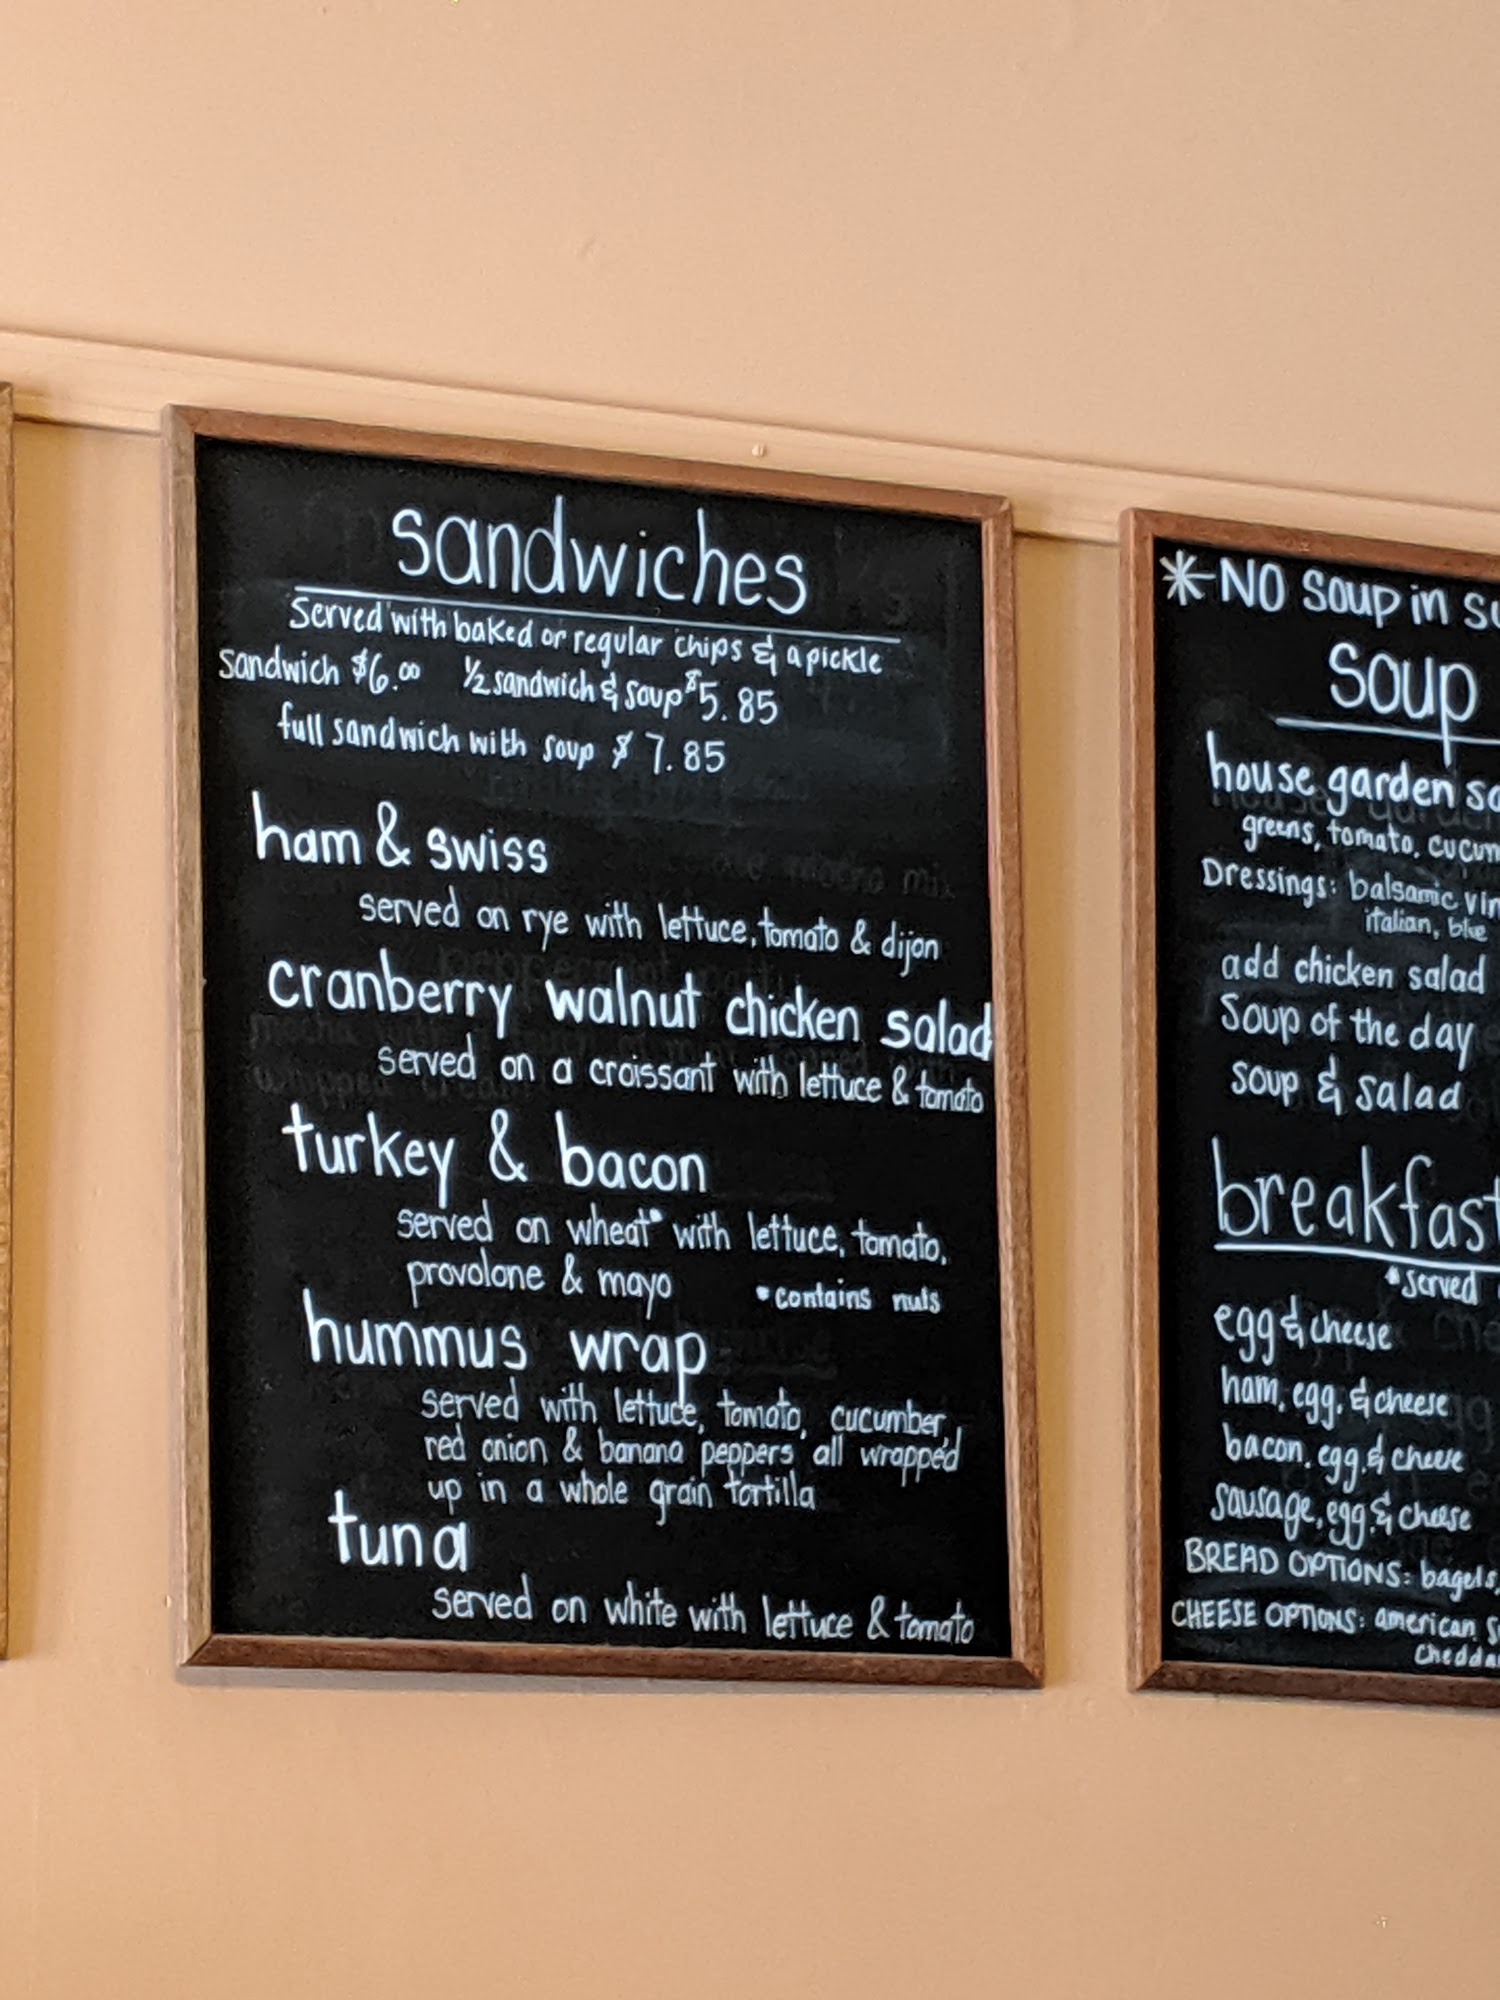 sandwiches
Served with baked or regular chips & a pickle
Sandwich $6.00 1/2 sandwich & soup $5.85
full sandwich with soup $7.85
ham & swiss
served on rye with lettuce, tomato & dijon
cranberry walnut chicken salad
served on a croissant with lettuce & tomato
turkey & bacon
served on wheat* with lettuce, tomato,
provolone & mayo *contains nuts
hummus wrap
served with lettuce, tomato, cucumber,
red onion & banana peppers all wrapped
up in a whole grain tortilla
tuna
served on white with lettuce & tomato
*NO Soup in
Soup
house garden
greens, tomato, cucum
Dressings: balsamic vin
italian, blue
add chicken salad
Soup of the day
soup & salad
breakfast
*served
egg & cheese
ham, egg, & cheese
bacon, egg, & cheese
sausage, egg, & cheese
BREAD OPTIONS: bagels,
CHEESE OPTIONS: american,
chedda